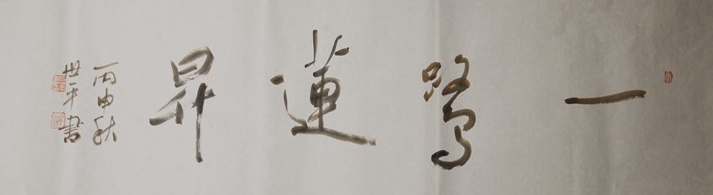 一鹭莲昇
丙申秋
世平書